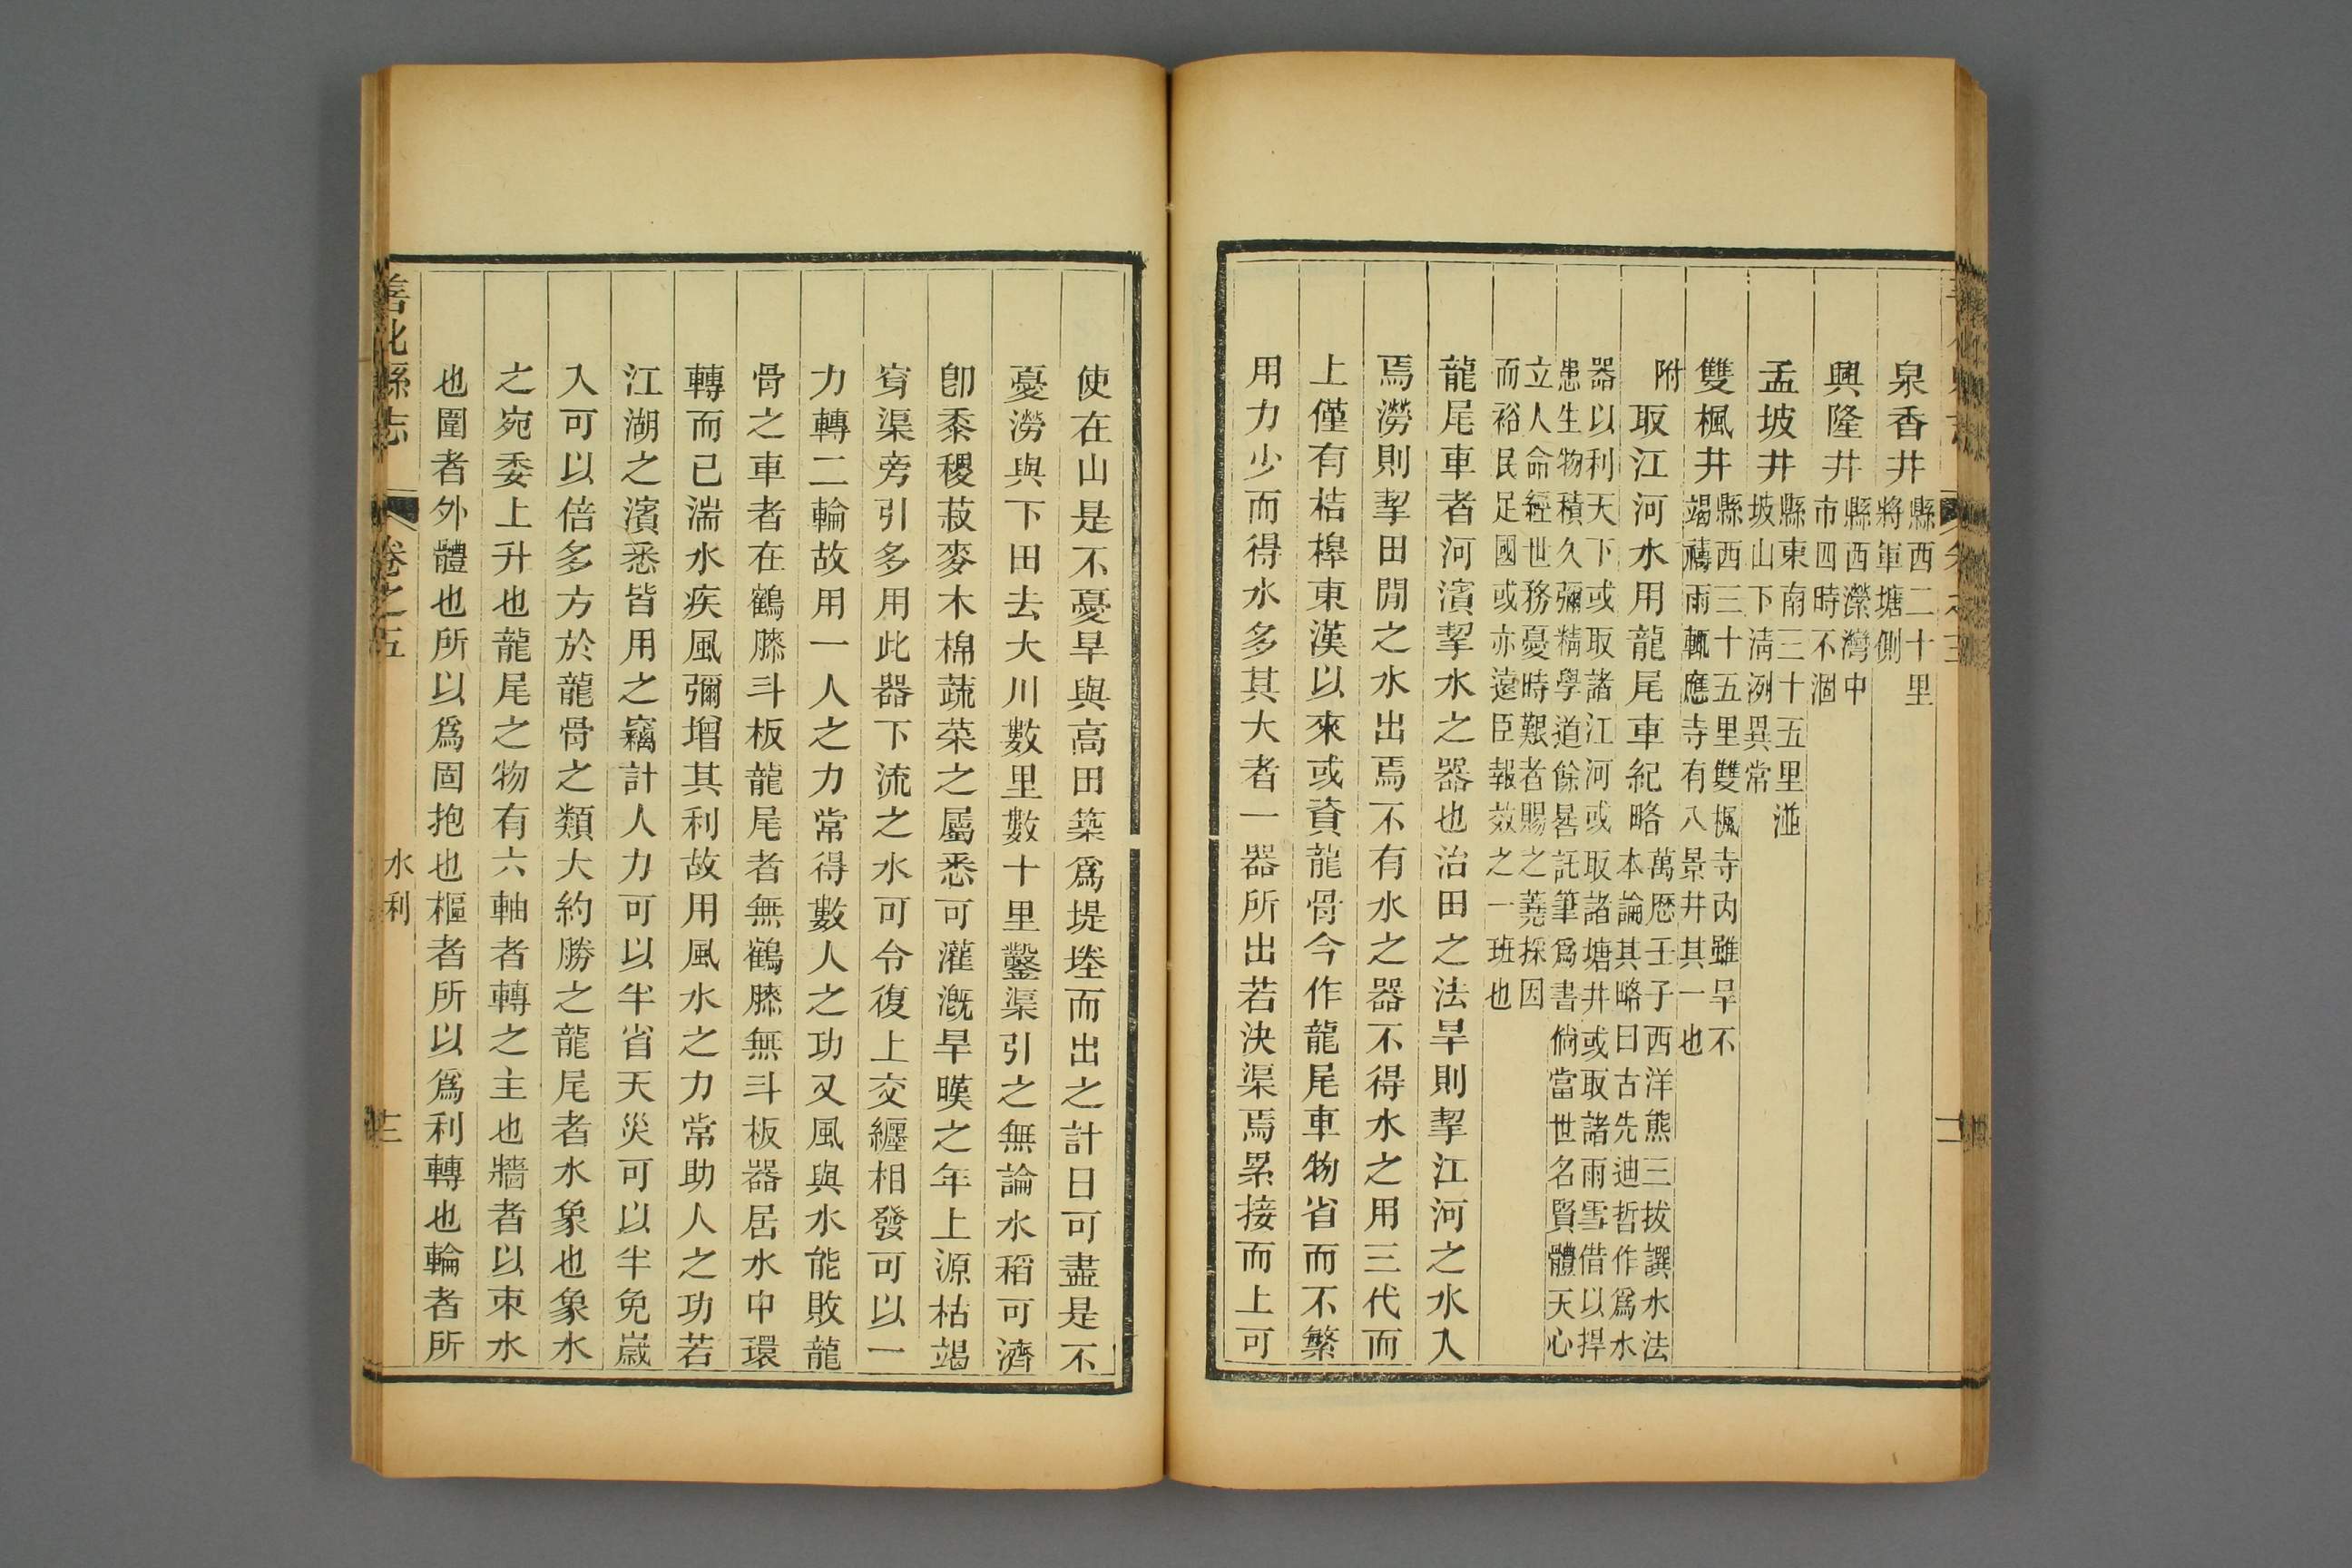 泉香井縣西二十里
將軍塘側
興隆井縣西濚灣中
市四時不涸
孟坡井縣東南三十五里逬
坡山下清洌異常
雙楓井縣西三十五里雙楓寺內雖旱不
竭禱雨輒應寺有八景井其一也
附取江河水用龍尾車紀略萬歷壬子西洋熊三拔譔水法
本論其略曰古先迪哲作爲水
器以利天下或取諸江河或取諸塘井或取諸雨雪借以捍
患生物積久彌精學道餘晷託筆爲書倘當世名賢體天心
立人命經世務憂時艱者賜之蕘採因
而裕民足國或亦遠臣報效之一班也
龍尾車者河濱挈水之器也治田之法旱則挈江河之水入
焉澇則挈田閒之水出焉不有水之器不得水之用三代而
上僅有桔槹東漢以來或資龍骨今作龍尾車物省而不繁
用力少而得水多其大者一器所出若決渠焉累接而上可
使在山是不憂旱與高田築爲堤塍而出之計日可盡是不
憂澇與下田去大川數里數十里鑿渠引之無論水稻可濟
卽黍稷菽麥木棉蔬菜之屬悉可灌漑旱暵之年上源枯竭
穿渠旁引多用此器下流之水可令復上交纏相發可以一
力轉二輪故用一人之力常得數人之功又風與水能敗龍
骨之車者在鶴膝斗板龍尾者無鶴膝無斗板器居水中環
轉而已湍水疾風彌增其利故用風水之力常助人之功若
江湖之濱悉皆用之竊計人力可以半省天災可以半免歲
入可以倍多方於龍骨之類大約勝之龍尾者水象也象水
之宛委上升也龍尾之物有六軸者轉之主也牆者以束水
也圍者外體也所以爲固抱也樞者所以爲利轉也輪者所
善化縣志 卷之五 水利